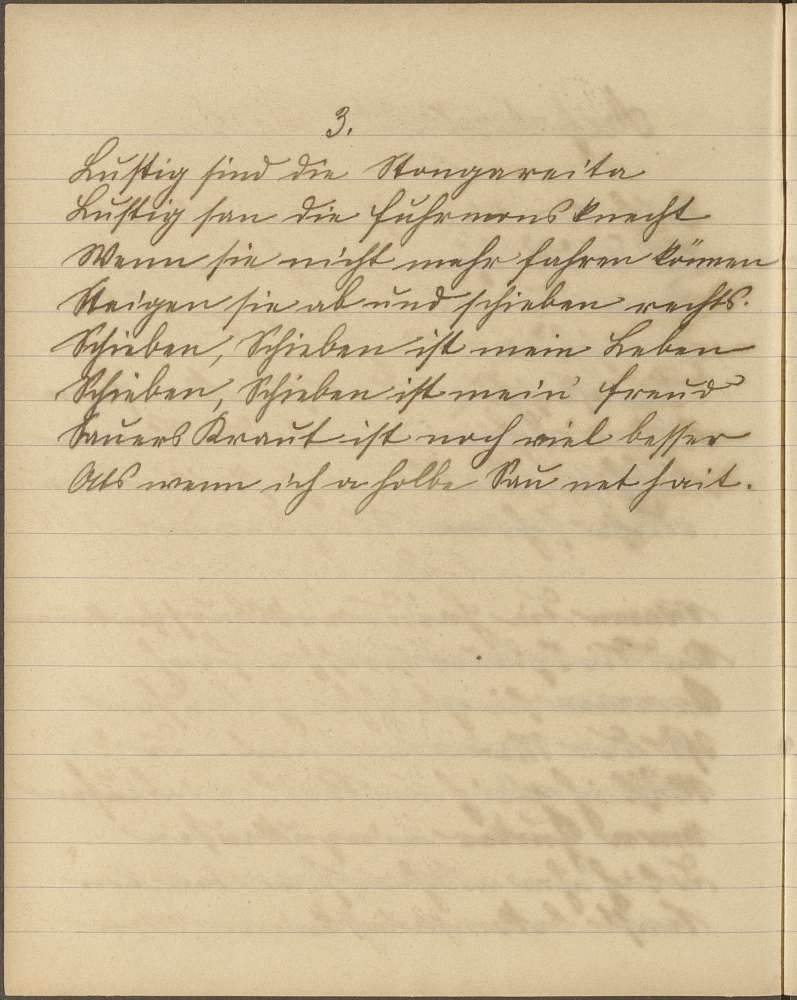 3.
Lustig sind die Stongareita
Lustig san die Fuhrmonsknecht
Wenn sie nicht mehr fahren können
Steigen sie ab und schieben rechts.
Schieben, Schieben ist mein Leben
Schieben, Schieben ist mein' Freud
Sauers Kraut ist noch viel besser
Als wenn ich a holbe Sau net hait.